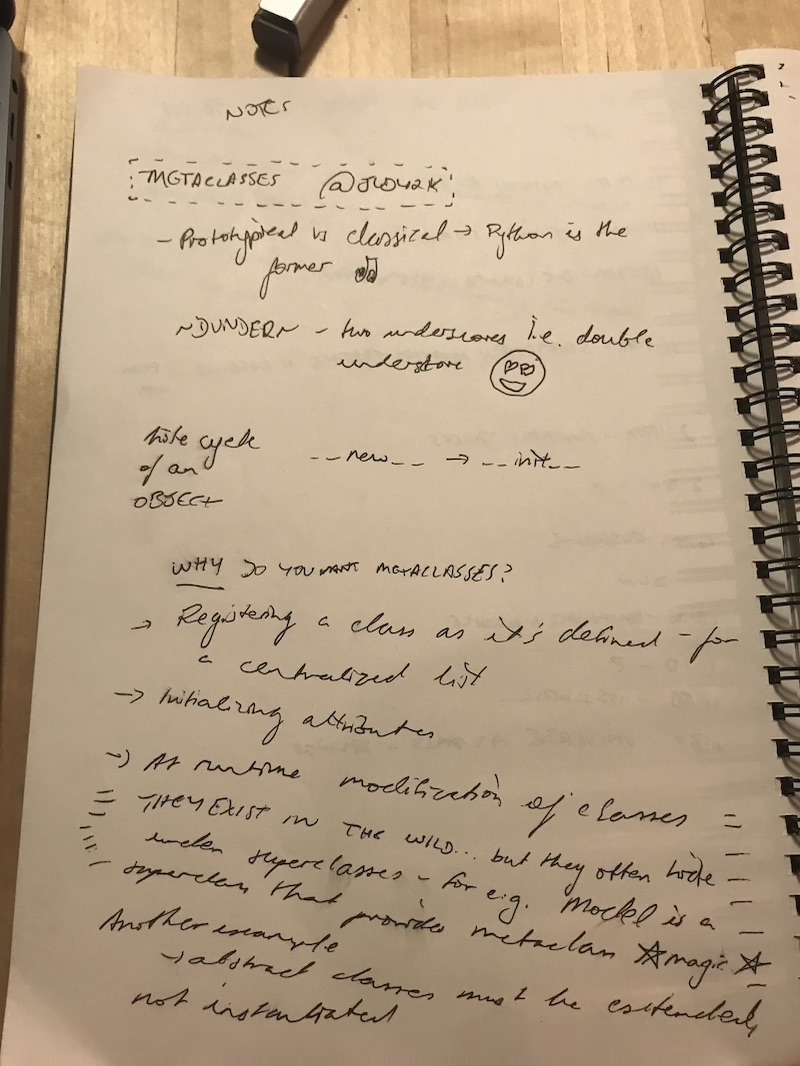 NOTES
METACLASSES @JLD42K
- Prototypical vs classical → Python is the
former
~DUNDER~ - two underscores i.e. double
underscore
Life cycle
of an
OBJECT
__new__ → __init__
WHY DO YOU WANT METACLASSES?
→ Registering a class as it's defined - for
a centralized list
→ Initializing attributes
→ At runtime modification of classes
THEY EXIST IN THE WILD... but they often hide
under superclasses - for e.g. Model is a
superclass that provides metaclass ☆magic☆
Another example
→ abstract classes must be extended,
not instantiated